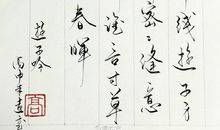 线遊子身
密〻缝意
谁言寸草
春暉
遊子吟
丙申年
高